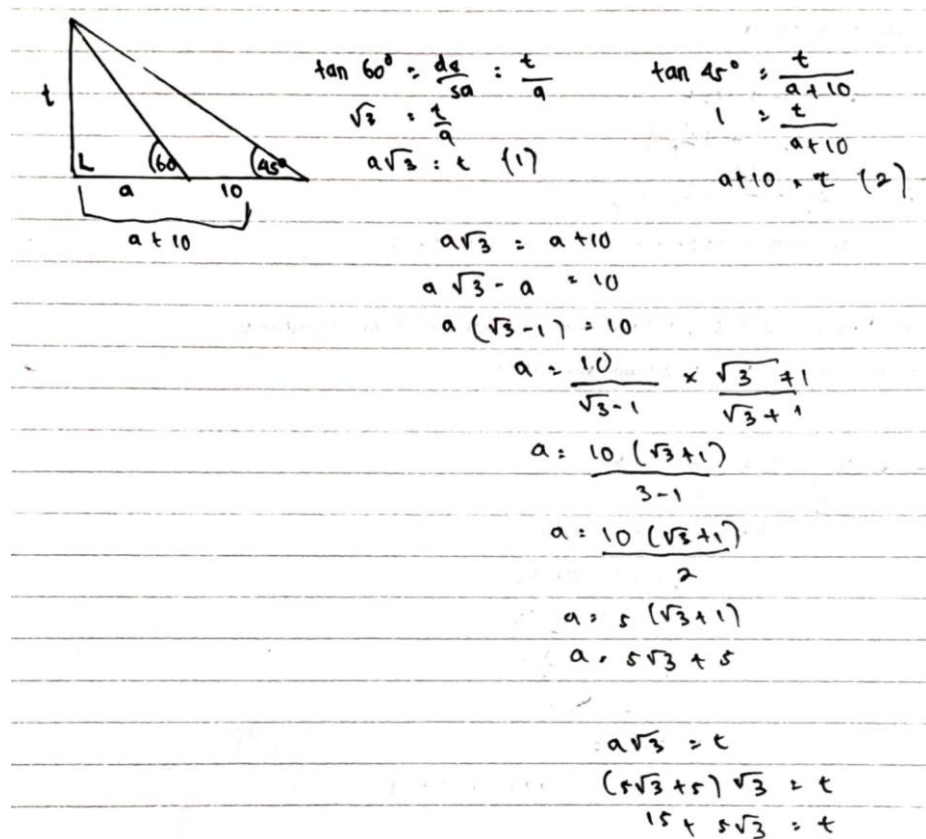 t
60
45°
a 10
a + 10
tan 60° = de/sa = t/a
√3 = t/a
a√3 = t (1)
tan 45° = t/a+10
1 = t/a+10
a+10 = t (2)
a√3 = a+10
a√3 - a = 10
a (√3-1) = 10
a = 10/√3-1 × √3+1/√3+1
a = 10 (√3+1)/3-1
a = 10 (√3+1)/2
a = 5 (√3+1)
a = 5√3 + 5
a√3 = t
(5√3+5) √3 = t
15 + 5√3 = t